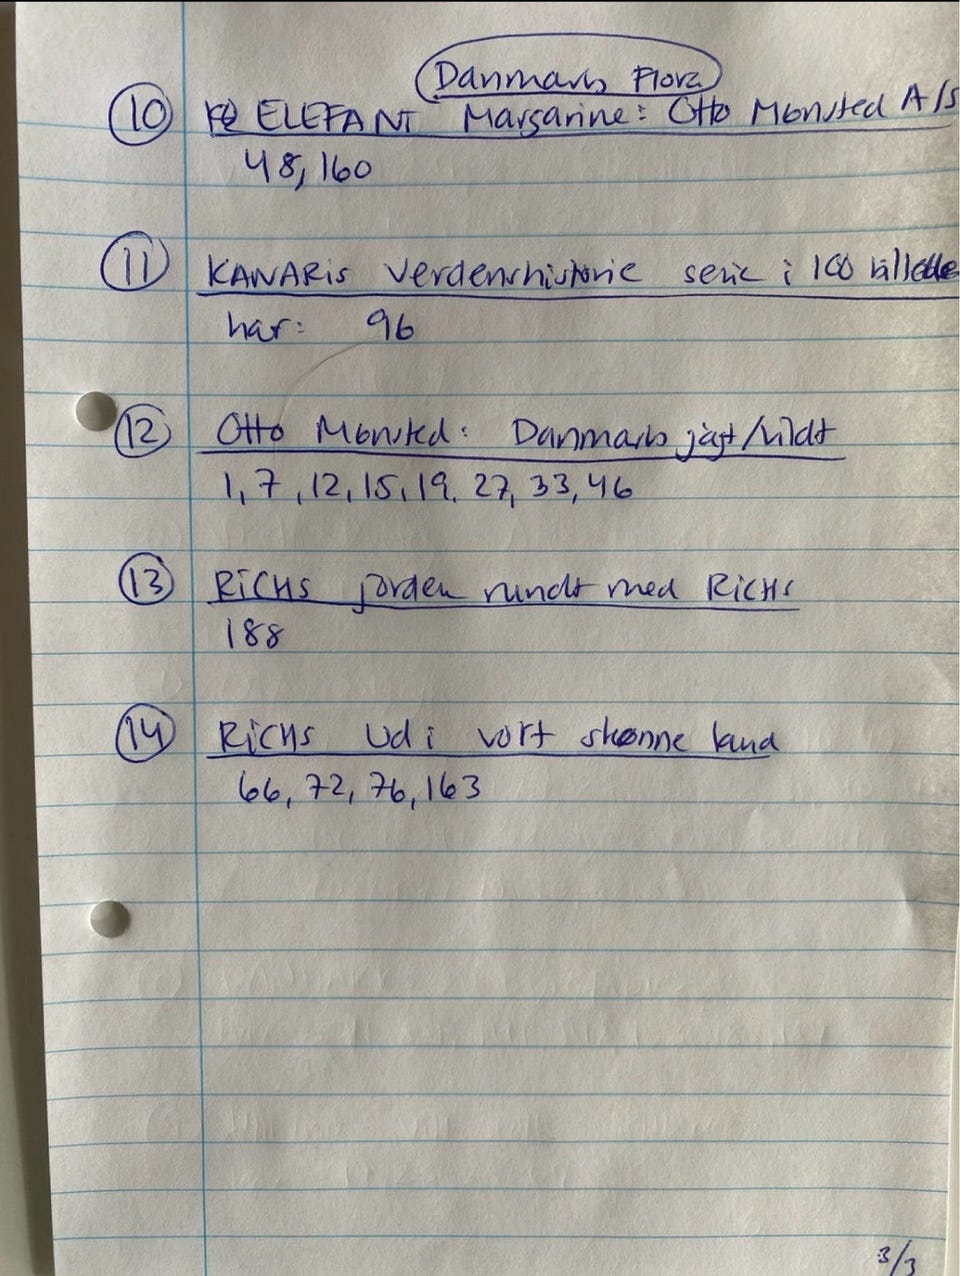 Danmarks Flora
10 ELEFANT Margarine: Otto Mønsted A/S
48, 160
11 KANARis Verdenshistorie serie i 100 billeder
har: 96
12 Otto Mønsted: Danmarks jagt/vildt
1, 7, 12, 15, 19, 27, 33, 46
13 RiCHS jorden rundt med RiCHS
188
14 RiCHS Ud i vort skønne land
66, 72, 76, 163
3/3